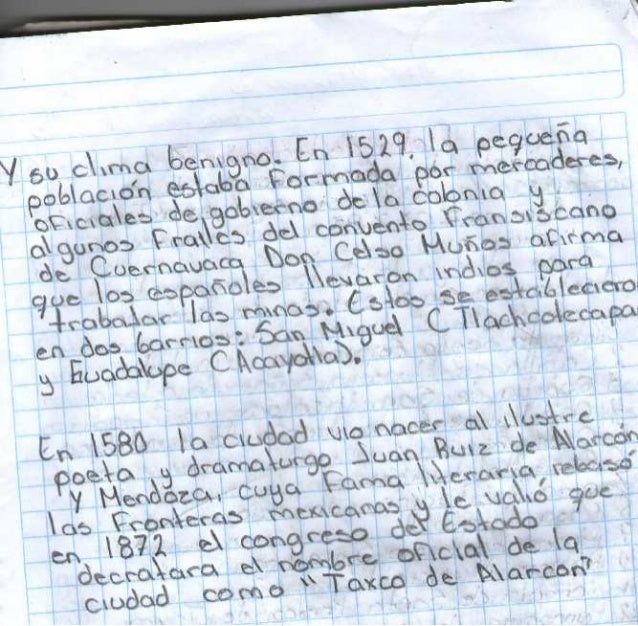 Y su clima benigno. En 1529, la pequeña
población estaba Formada por mercaderes,
oficiales de gobierno de la colonia y
algunos Frailes del convento Fransiscano
de Cuernavaca Don Celso Muños afirma
que los españoles llevaron indios para
trabalar las minas. Estos se establecieron
en dos barrios: San Miguel (Tlachcotecapa
y Guadalupe (Acayotla).
En 1580 la ciudad vio nacer al ilustre
poeta y dramaturgo Juan Ruiz de Alarcón
y Mendoza, cuya Fama literaria rebasó
las Fronteras mexicanas y le valió que
en 1872 el congreso del Estado
decratara el nombre oficial de la
ciudad como "Taxco de Alarcon"